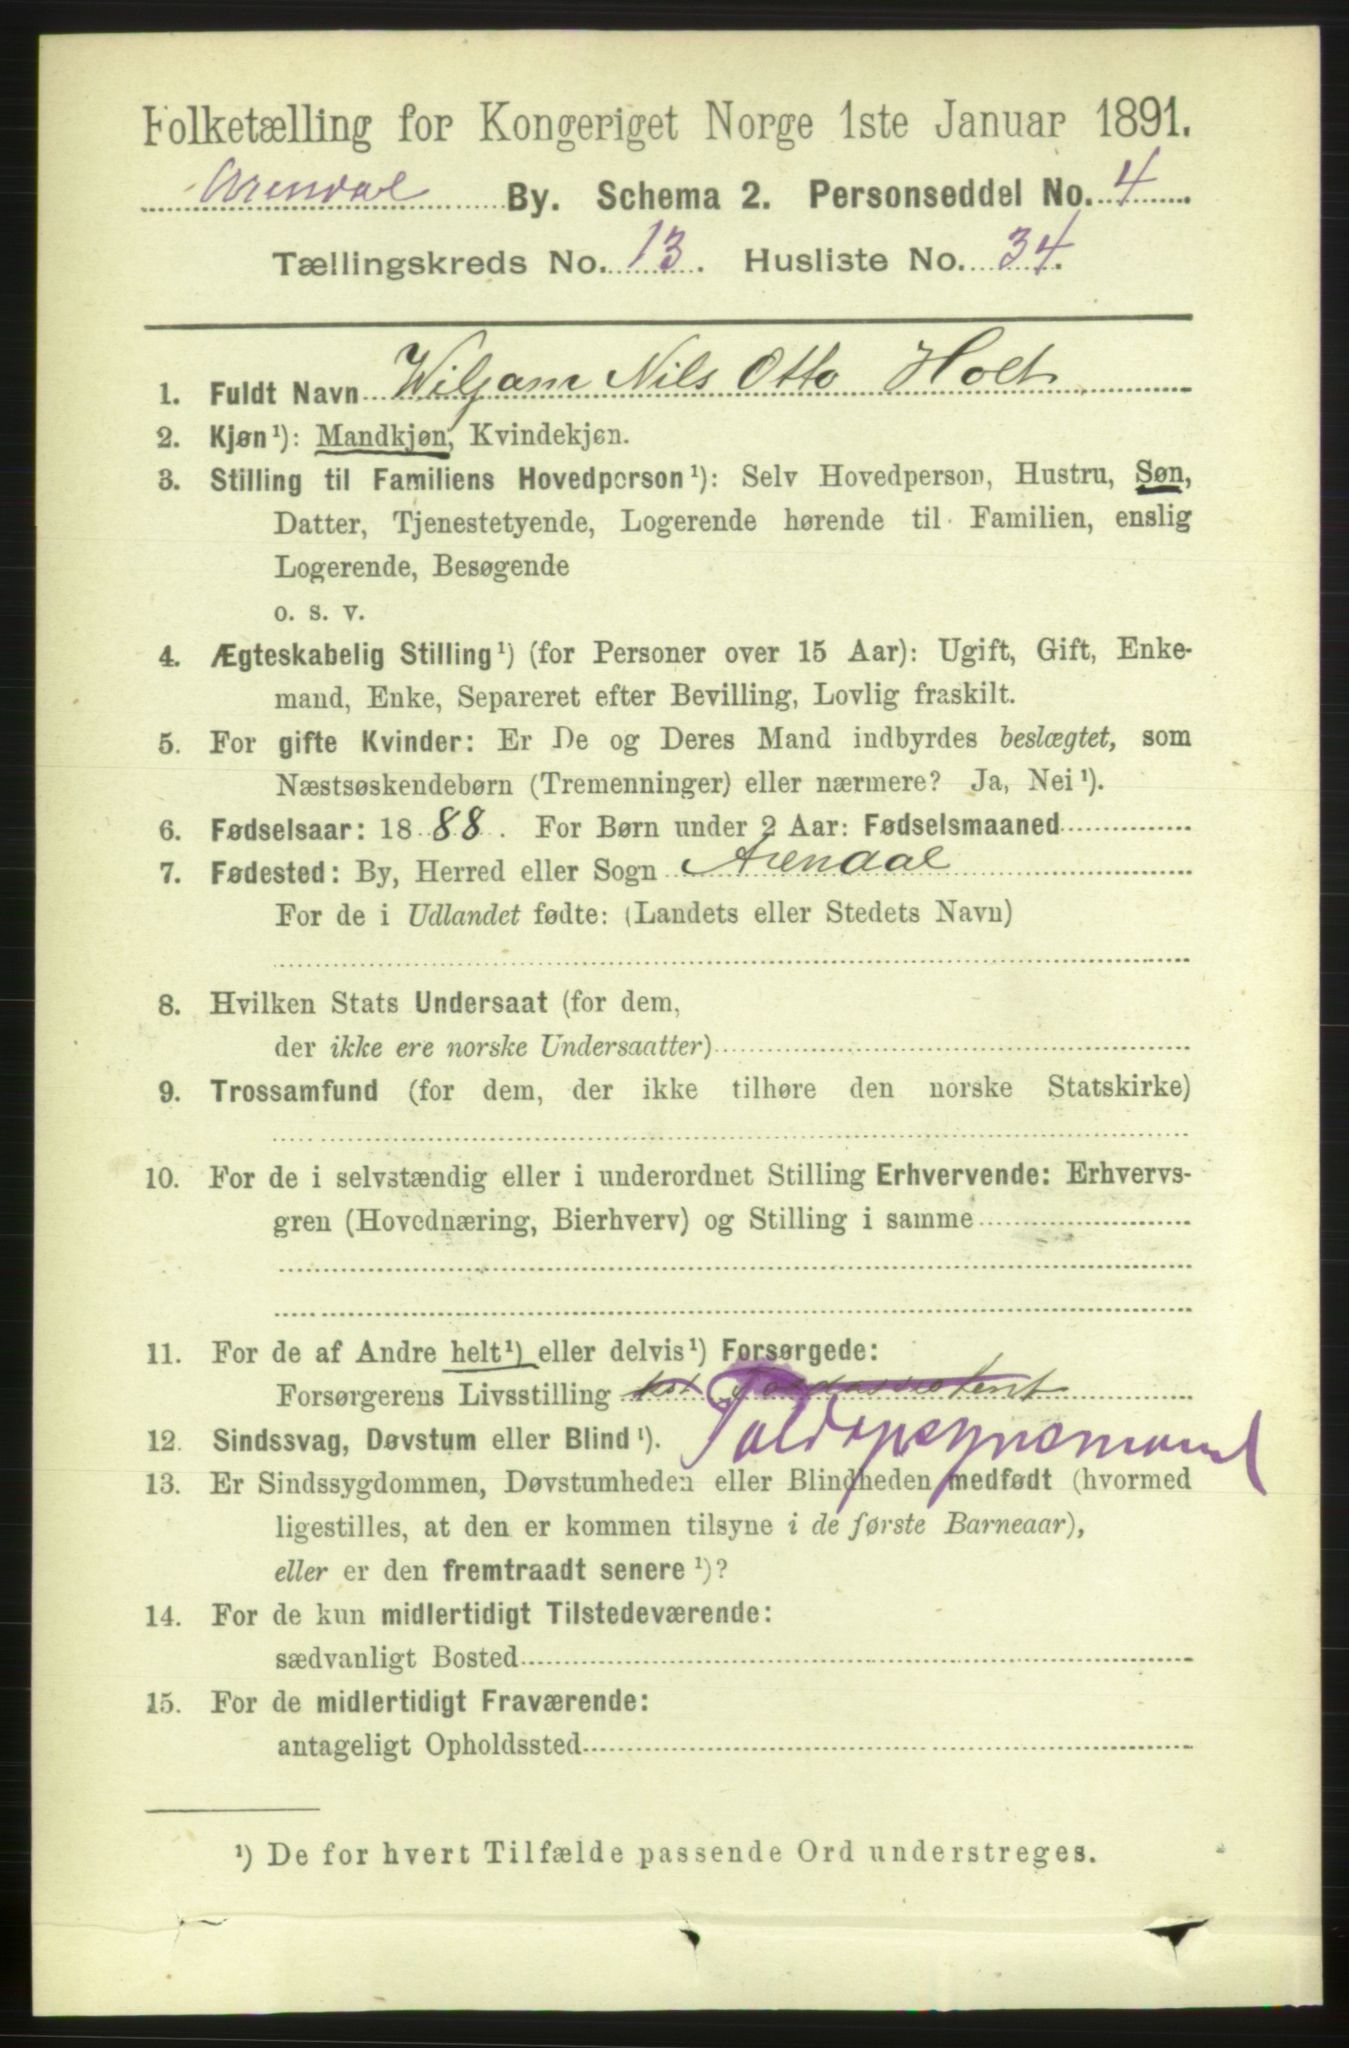 Folketælling for Kongeriget Norge 1ste Januar 1891.
Arendal By. Schema 2. Personseddel No. 4
Tællingskreds No. 13. Husliste No. 34.
1. Fuldt Navn Wiljam Nils Otto Holt
2. Kjøn¹): Mandkjøn, Kvindekjøn.
3. Stilling til Familiens Hovedperson¹): Selv Hovedperson, Hustru, Søn,
Datter, Tjenestetyende, Logerende hørende til Familien, enslig
Logerende, Besøgende
o. s. v.
4. Ægteskabelig Stilling¹) (for Personer over 15 Aar): Ugift, Gift, Enke-
mand, Enke, Separeret efter Bevilling, Lovlig fraskilt.
5. For gifte Kvinder: Er De og Deres Mand indbyrdes beslægtet, som
Næstsøskendebørn (Tremenninger) eller nærmere? Ja, Nei¹).
6. Fødselsaar: 1888. For Børn under 2 Aar: Fødselsmaaned
7. Fødested: By, Herred eller Sogn Arendal
For de i Udlandet fødte: (Landets eller Stedets Navn)
8. Hvilken Stats Undersaat (for dem,
der ikke ere norske Undersaatter)
9. Trossamfund (for dem, der ikke tilhøre den norske Statskirke)
10. For de i selvstændig eller i underordnet Stilling Erhvervende: Erhvervs-
gren (Hovednæring, Bierhverv) og Stilling i samme
11. For de af Andre helt¹) eller delvis¹) Forsørgede:
Forsørgerens Livsstilling Toldassistent
Toldopsynsmand
12. Sindssvag, Døvstum eller Blind¹).
13. Er Sindssygdommen, Døvstumheden eller Blindheden medfødt (hvormed
ligestilles, at den er kommen tilsyne i de første Barneaar),
eller er den fremtraadt senere¹)?
14. For de kun midlertidigt Tilstedeværende:
sædvanligt Bosted
15. For de midlertidigt Fraværende:
antageligt Opholdssted
¹) De for hvert Tilfælde passende Ord understreges.